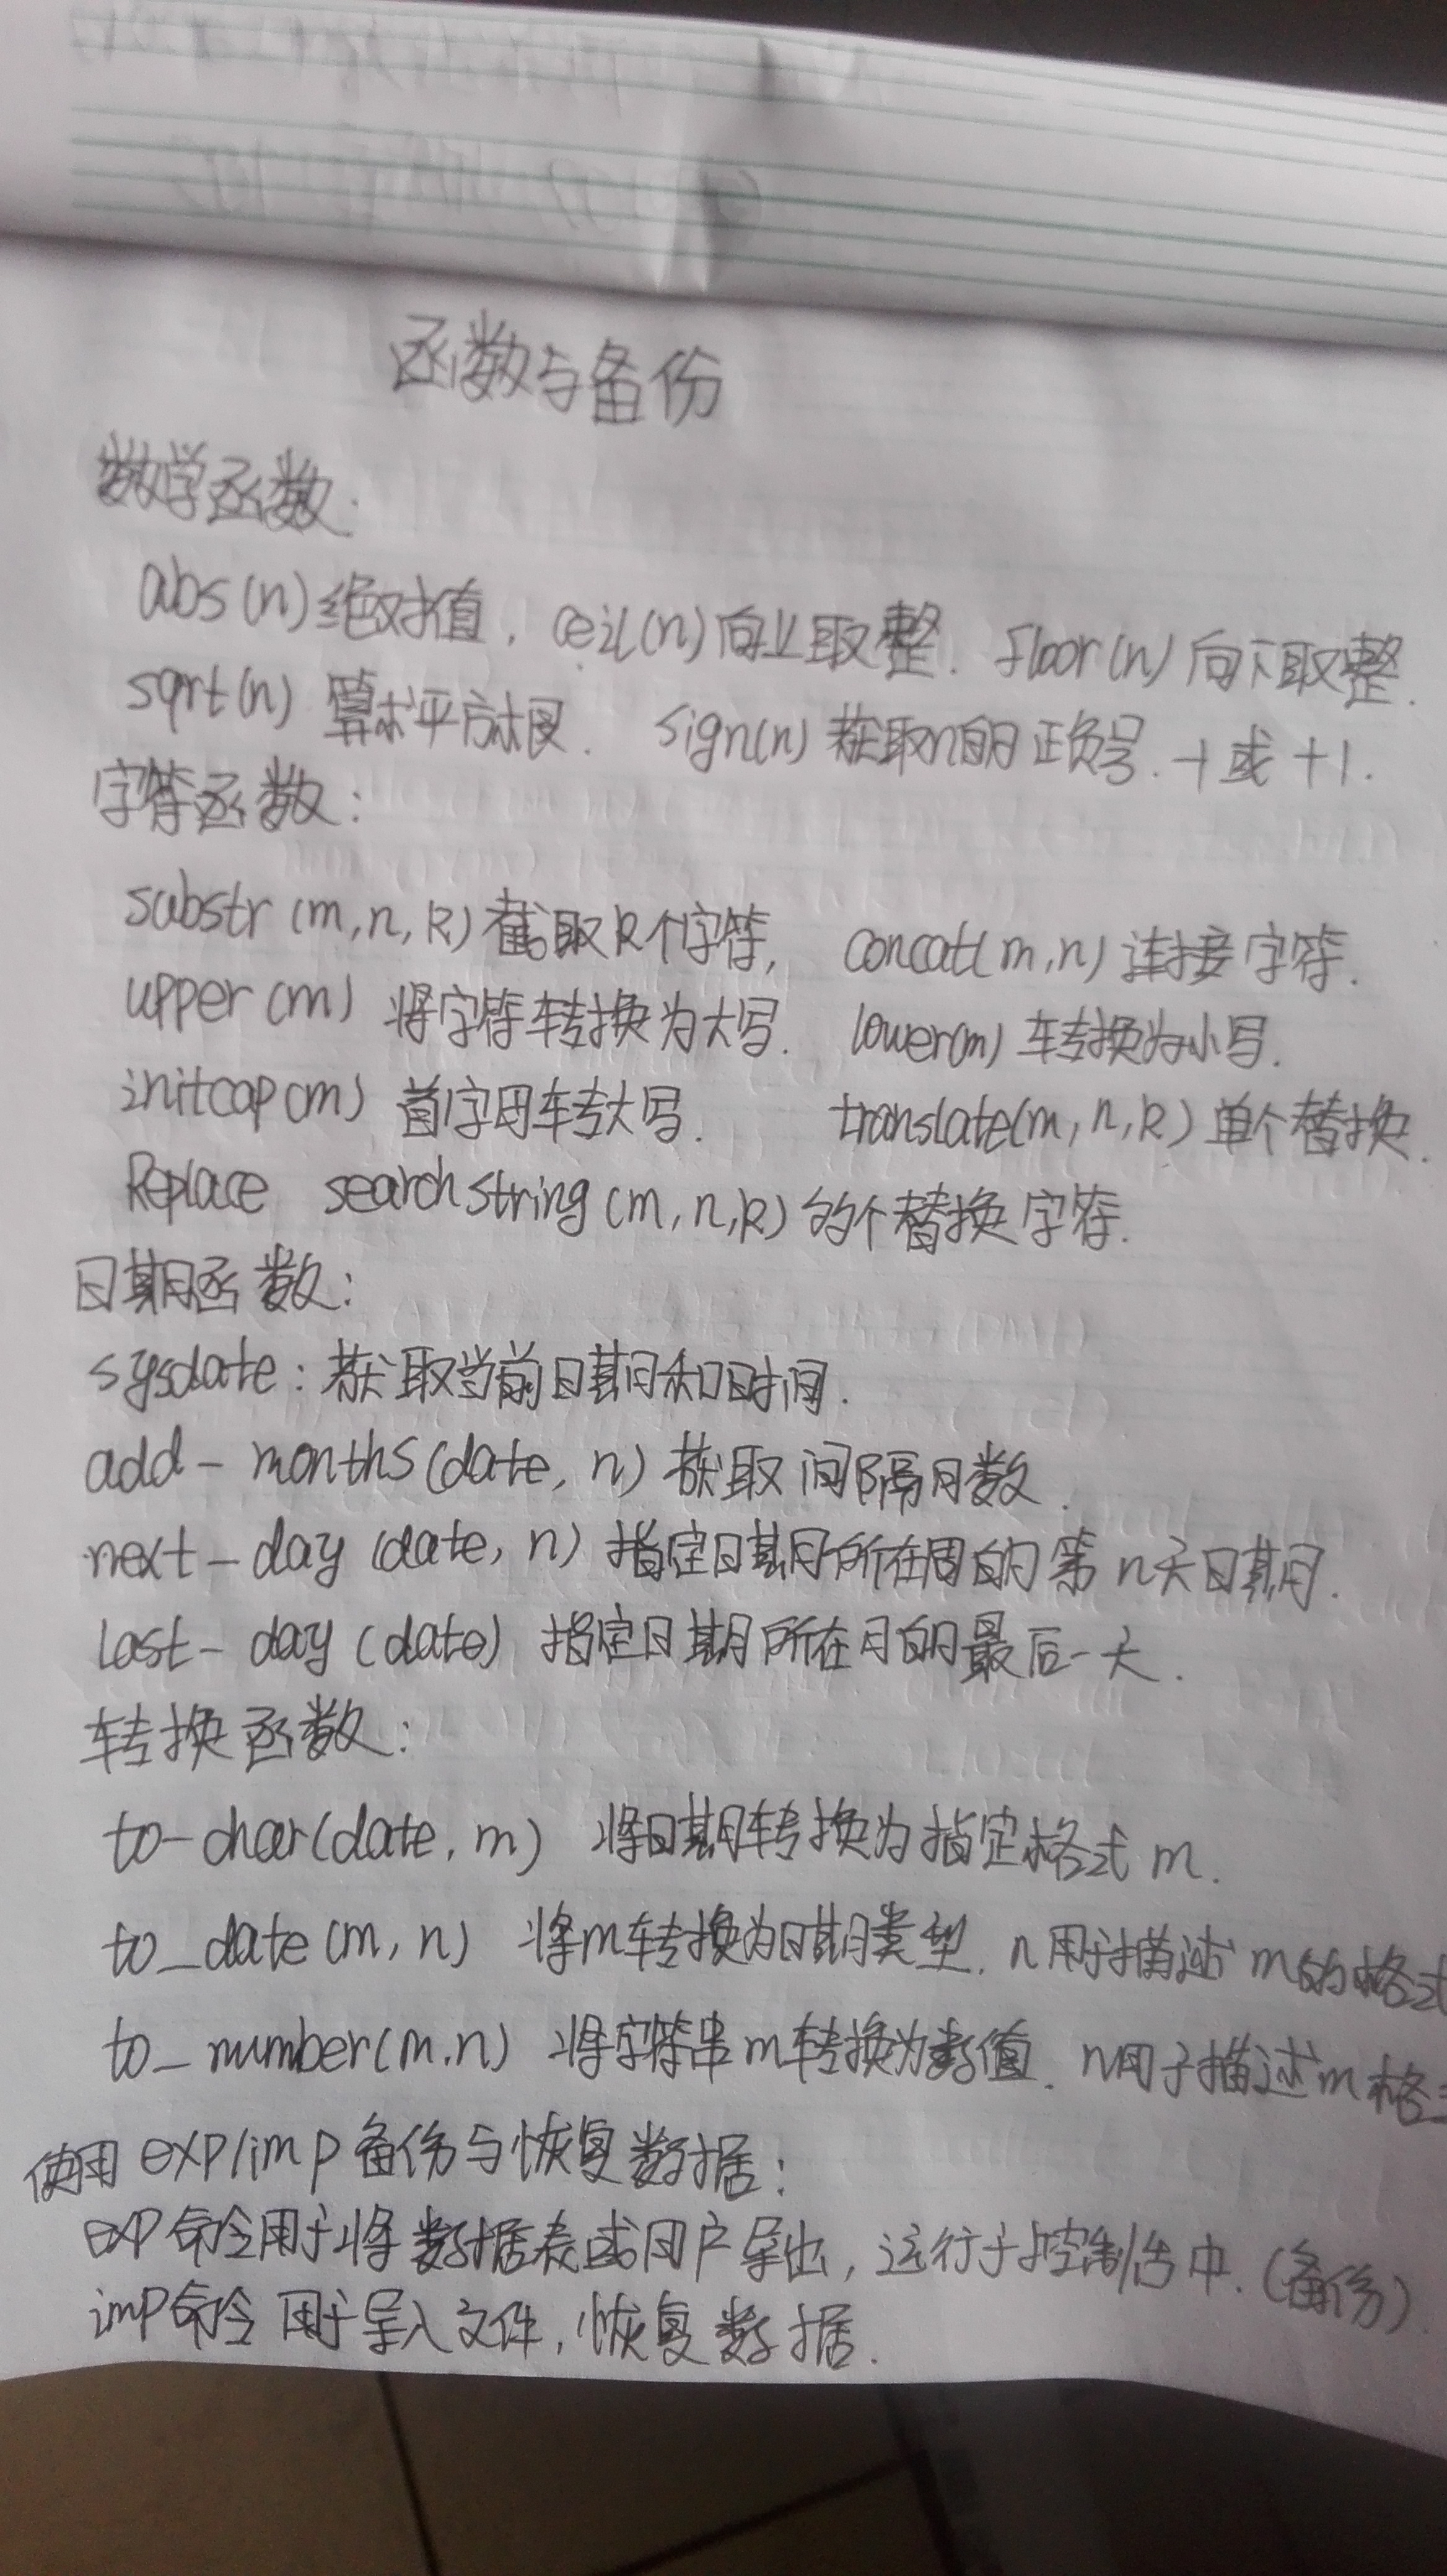 函数与备份
数学函数.
abs(n)绝对值, ceil(n)向上取整. floor(n)向下取整.
sqrt(n) 算术平方根. sign(n)获取n的正负号. -1或 +1.
字符函数:
substr(m,n,k)截取k个字符, concat(m,n)连接字符.
upper(m) 将字符转换为大写. lower(m)转换为小写.
initcap(m) 首字母转大写. translate(m,n,k)单个替换.
Replace searchstring(m,n,k) 替换字符.
日期函数:
sysdate:获取当前日期和时间.
add-months(date, n)获取间隔月数.
next-day (date, n) 指定日期所在周的第n天日期.
last-day (date) 指定日期所在月的最后一天.
转换函数:
to-char(date, m) 将日期转换为指定格式m.
to_date(m, n) 将m转换为日期类型. n用于描述m的格式
to_number(m.n) 将字符串m转换为数值. n用于描述m格
使用exp/imp备份与恢复数据:
exp命令用于将数据表或用户导出,运行于控制台中.(备份)
imp命令用于导入文件,恢复数据.